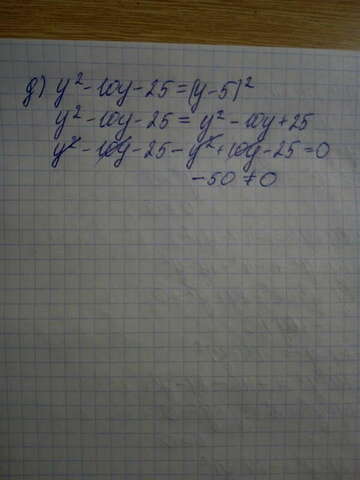 д) y² - 10y - 25 = (y - 5)²
y² - 10y - 25 = y² - 10y + 25
y² - 10y - 25 - y² + 10y - 25 = 0
-50 ≠ 0